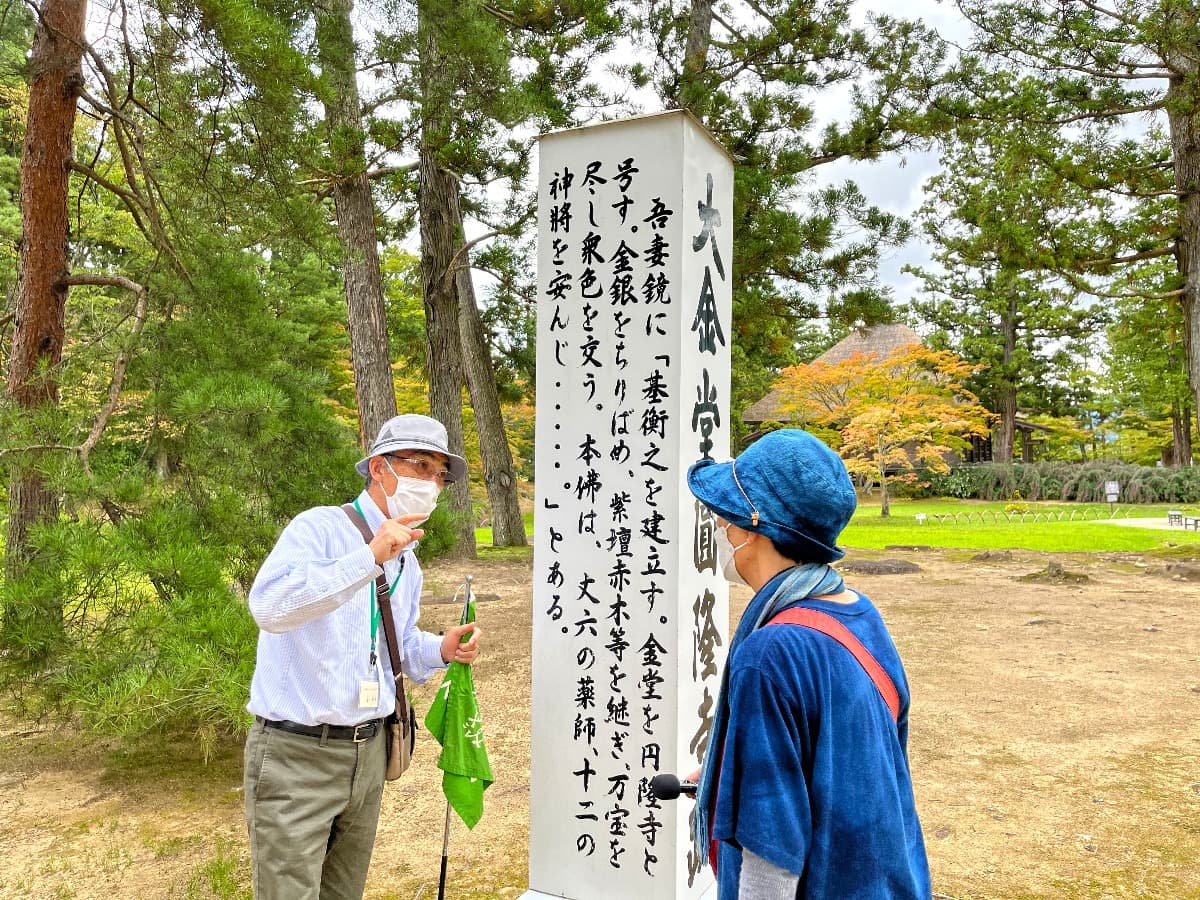 吾妻鏡に「基衡之を建立す。金堂を円隆寺と
号す。金銀をちりばめ、紫壇赤木等を継ぎ、万宝を
尽し衆色を交う。本佛は、丈六の薬師、十二の
神將を安んじ・・・・・。」とある。
大金堂圓隆寺跡